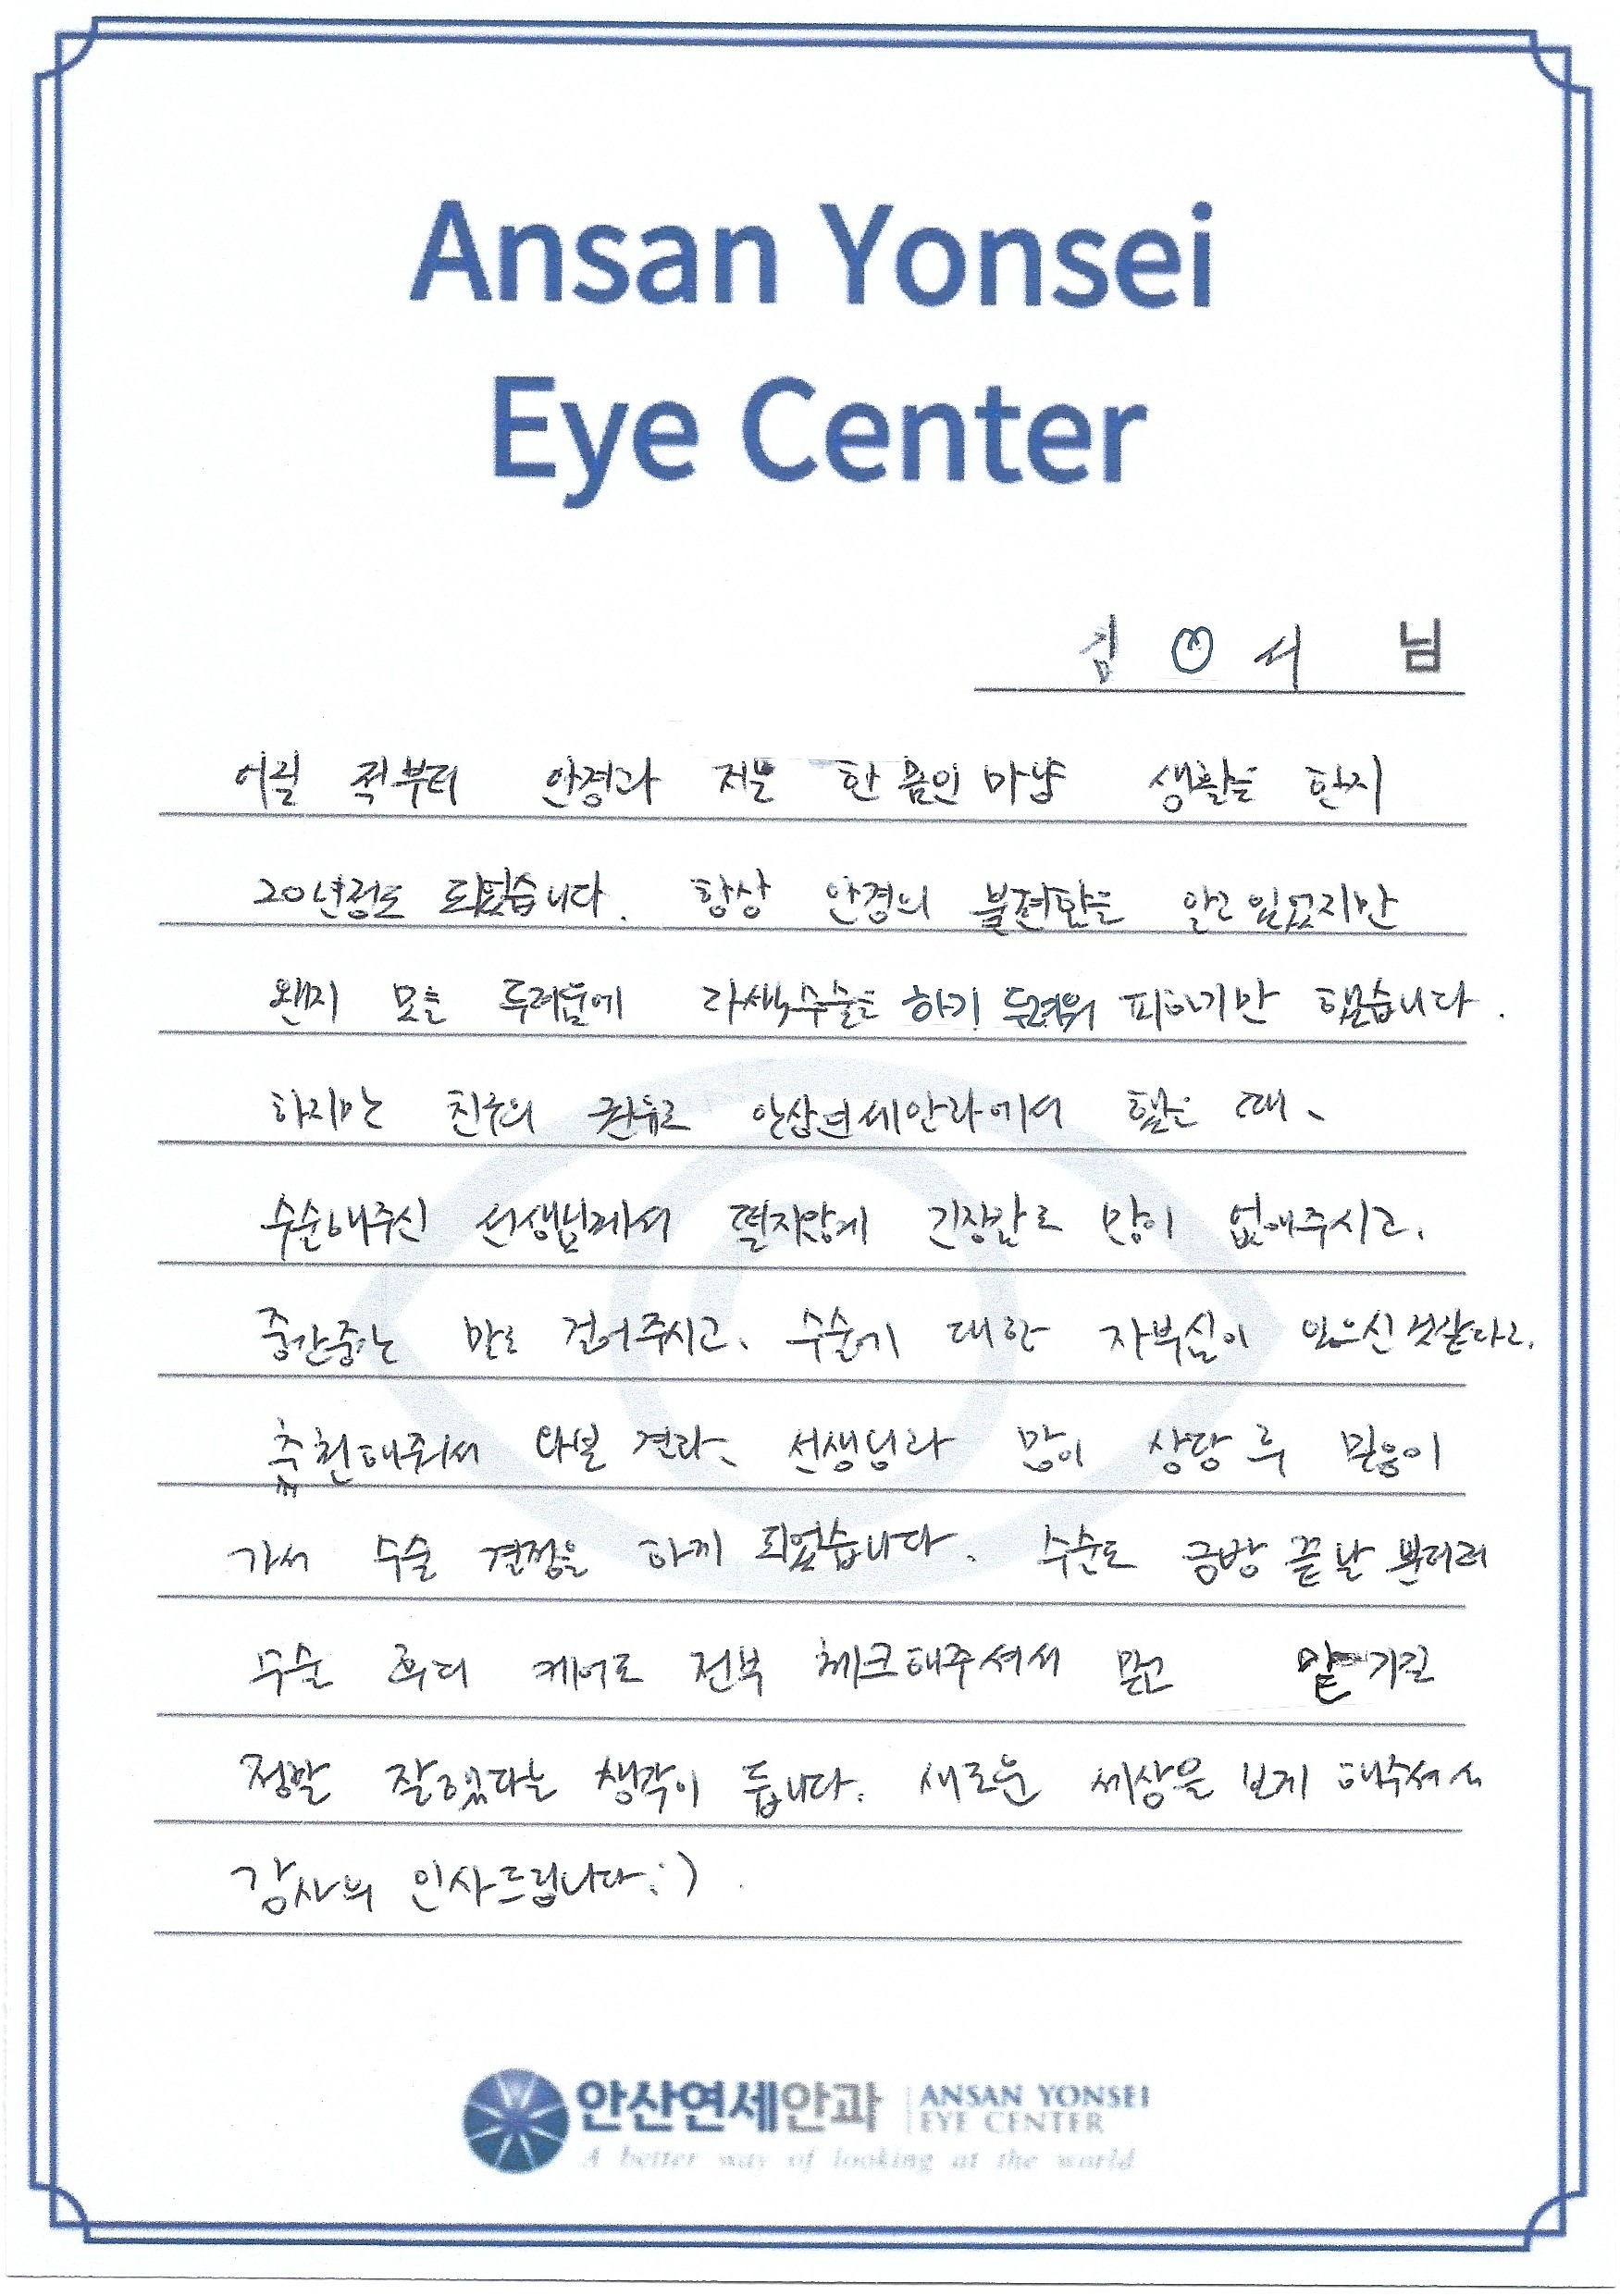 Ansan Yonsei
Eye Center
김 O 서 님
어릴 적부터 안경과 저는 한 몸인 마냥 생활을 한지
20년정도 되었습니다. 항상 안경의 불편함을 알고 있었지만
왠지 모를 두려움에 라섹수술을 하기 두려워 피하기만 했습니다.
하지만 친구의 권유로 안산연세안과에서 했을 때,
수술해주신 선생님께서 떨지않게 긴장감도 많이 없애주시고,
중간중간 말도 걸어주시고, 수술에 대한 자부심이 있으신것같다고,
추천해줘서 와본 결과, 선생님과 많이 상담 후 믿음이
가서 수술 결정을 하게 되었습니다. 수술도 금방 끝날 뿐더러
수술 후의 케어도 전부 체크해주셔서 믿고 맡기길
정말 잘했다는 생각이 듭니다. 새로운 세상을 보게 해주셔서
감사의 인사드립니다:)
안산연세안과 ANSAN YONSEI
EYE CENTER
A better way of looking at the world